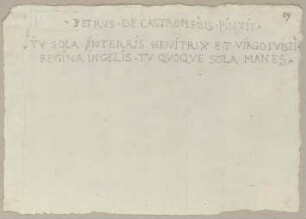 89
· PETRUS · DE CASTROPLEBIS · PINXIT ·
· TV SOLA INTERRIS GENITRIX · ET VIRGO FVISTI
REGINA INCELIS · TV QUOQUE SOLA MANES ·